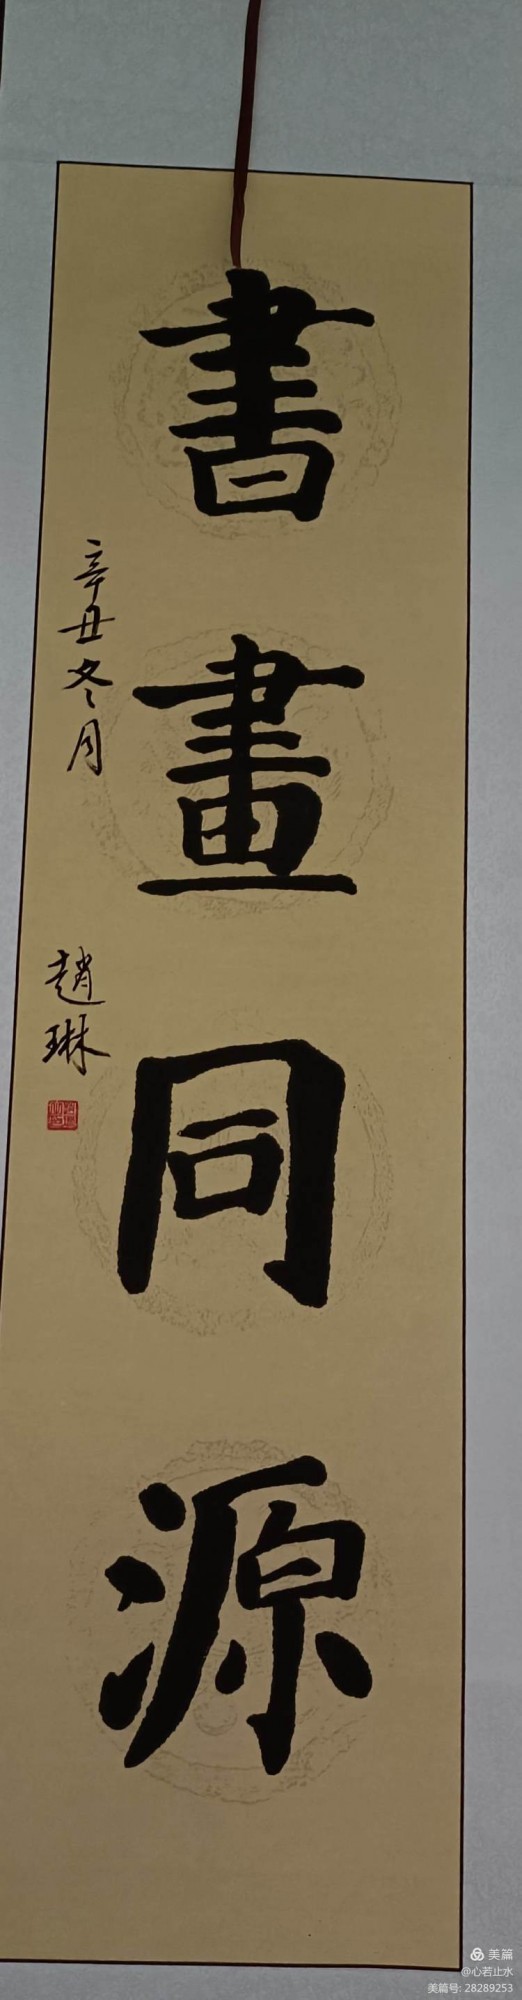 書畫同源
辛丑冬月
趙琳
美篇
@心若止水
美篇号: 28289253